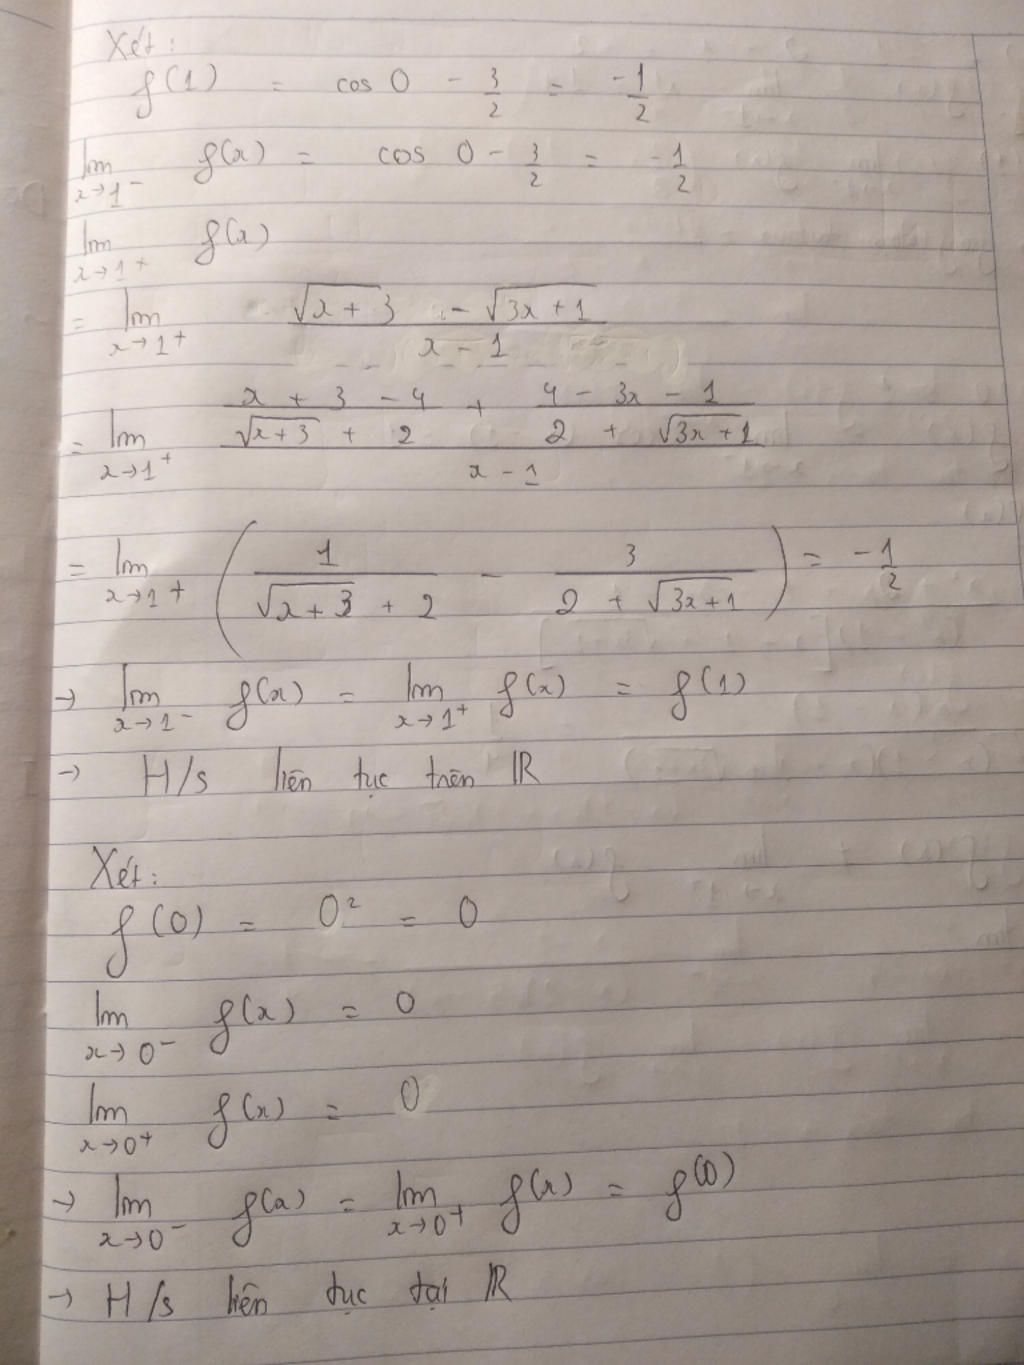 Xét:
f(1) = cos 0 - 3/2 = -1/2
lim x→1⁻ f(x) = cos 0 - 3/2 = -1/2
lim x→1⁺ f(x)
= lim x→1⁺ (√(x+3) - √(3x+1))/(x - 1)
= lim x→1⁺ ((x + 3 - 4)/(√(x+3) + 2) + (4 - 3x - 1)/(2 + √(3x+1)))/(x - 1)
= lim x→1⁺ (1/(√(x+3) + 2) - 3/(2 + √(3x+1))) = -1/2
→ lim x→1⁻ f(x) = lim x→1⁺ f(x) = f(1)
→ H/s liên tục trên ℝ
Xét:
f(0) = 0² = 0
lim x→0⁻ f(x) = 0
lim x→0⁺ f(x) = 0
→ lim x→0⁻ f(x) = lim x→0⁺ f(x) = f(0)
→ H/s liên tục tại ℝ